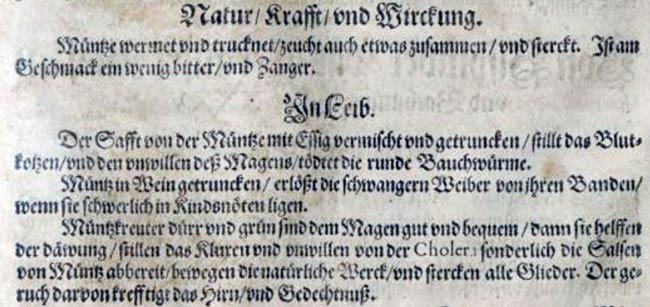 Natur/ Krafft/ vnd Wirckung.
Müntze wermet vnd trucknet/zeucht auch etwas zusammen/ vnd sterckt. Ist am
Geschmack ein wenig bitter/vnd Zanger.
In Leib.
Der Safft von der Müntze mit Essig vermischt vnd getruncken/ stillt das Blut-
kotzen/vnd den vnwillen deß Magens/tödtet die runde Bauchwürme.
Müntz in Wein getruncken/ erlößt die schwangern Weiber von ihren Banden/
wenn sie schwerlich in Kindsnöten ligen.
Müntzkreuter dürr vnd grün sind dem Magen gut vnd bequem/ dann sie helffen
der däwung/ stillen das Kluxen vnd vnwillen von der Cholera sonderlich die Salsen
von Müntz abbereit/bewegen die natürliche Werck/vnd stercken alle Glieder. Der ge-
ruch darvon krefftigt das Hirn/vnd Gedechtnuß.